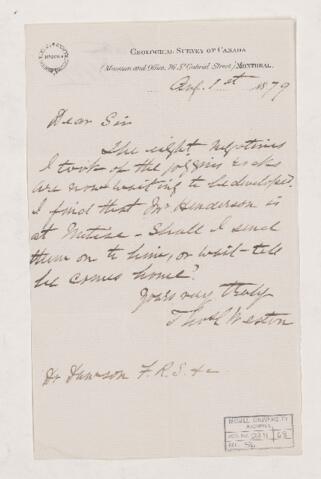 GEOLOGICAL SURVEY OF CANADA
(Museum and Office, 76 St Gabriel Street) MONTREAL.
Aug. 1st 1879
Dear Sir
The eight negatives
I took of the joggins rocks
are now waiting to be developed.
I find that Mr Henderson is
at Metise - Shall I send
them on to him, or wait till
he comes home?
Yours very truly
Thos Weston
Dr Dawson F.R.S. &c
McGILL UNIVERSITY
ARCHIVES
ACC. NO. 2211 68
REF. 56